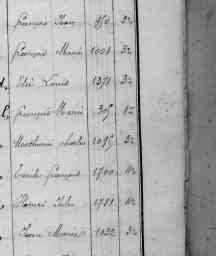 François Jean 950 32
François Marie 1004 32
Elie Louis 1371 32
François Marie 305 82
Mathurin Charles 1095 32
Emile François 1700 42
Henri Jules 1781 42
Jean Marie 1022 32